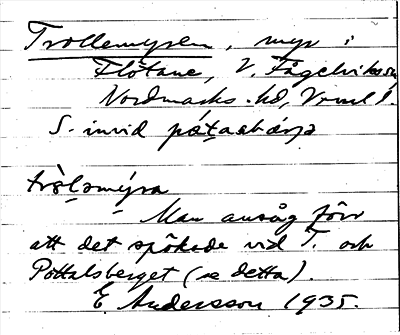 Trollemyren, myr i
Flötane, V. Fågelviks sn,
Nordmarks hd, Vrml.
S. invid
Man ansåg förr
att det spökade vid T. och
Pottalsberget (se detta).
E. Andersson 1935.